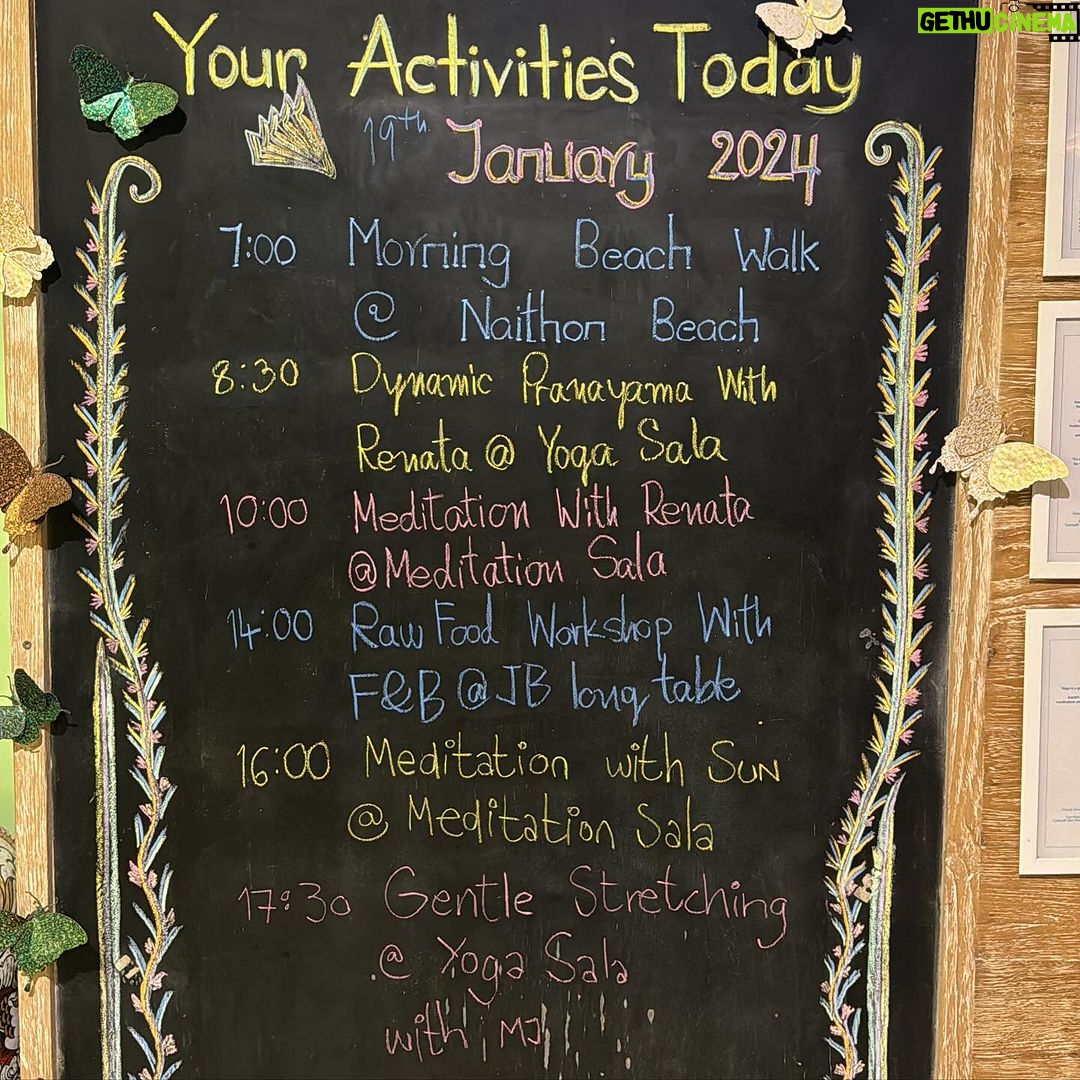 GETHU CINEMA
Your Activities Today
19th January 2024
7:00 Morning Beach Walk
@ Naithon Beach
8:30 Dynamic Pranayama With
Renata @ Yoga Sala
10:00 Meditation With Renata
@Meditation Sala
14:00 Raw Food Workshop With
F&B @JB long table
16:00 Meditation with Sun
@ Meditation Sala
17:30 Gentle Stretching
@ Yoga Sala
with MJ